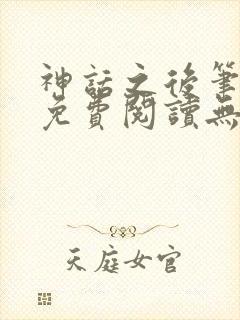 神話之後筆
免費閱讀無
天庭女官